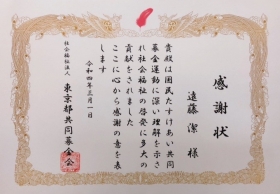 感謝状
遠藤潔様
貴殿は国民たすけあい共同
募金運動に深い理解を示さ
れ社会福祉の啓発に多大の
貢献をされました
ここに心から感謝の意を表
します
令和四年三月一日
社会福祉法人
東京都共同募金会